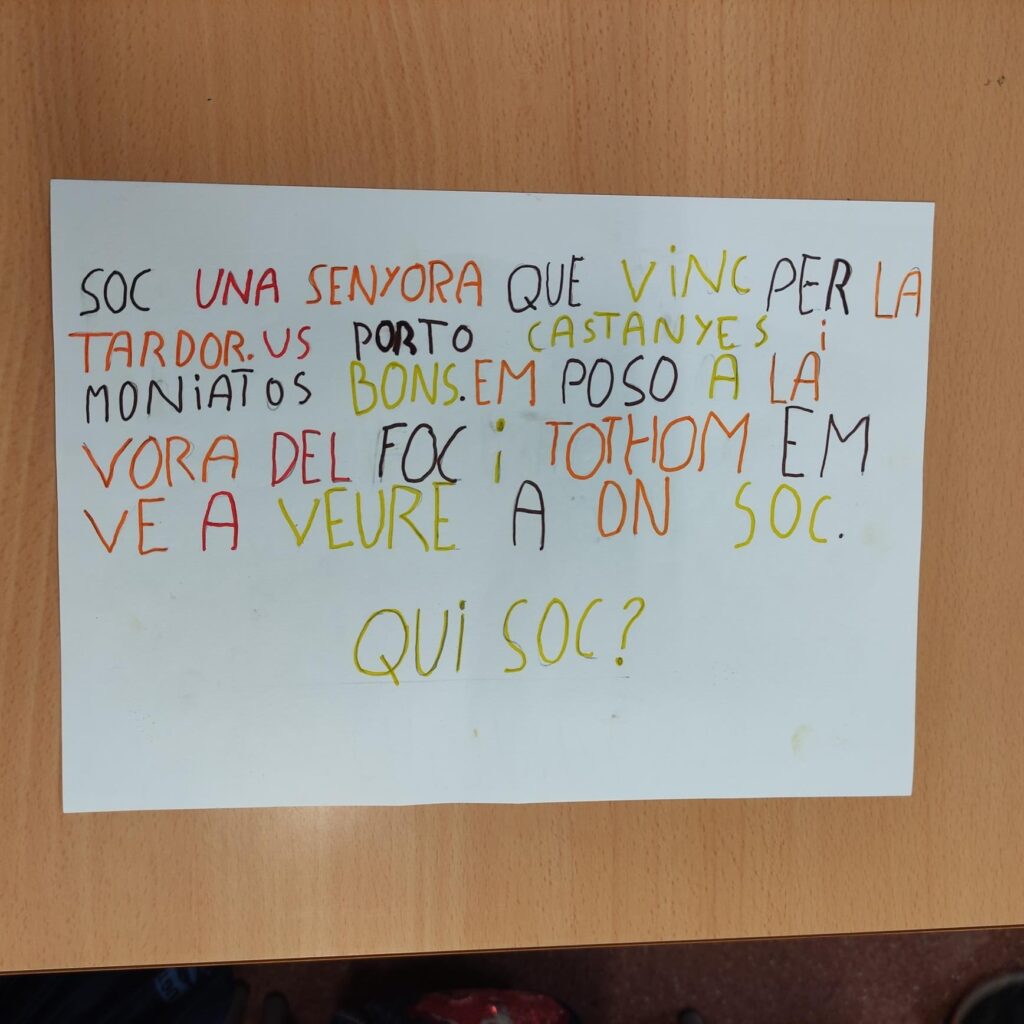 SOC UNA SENYORA QUE ViNC PER LA
TARDOR. US PORTO CASTANYES i
MONiATOS BONS. EM POSO A LA
VORA DEL FOC i TOTHOM EM
VE A VEURE A ON SOC.
QUi SOC?